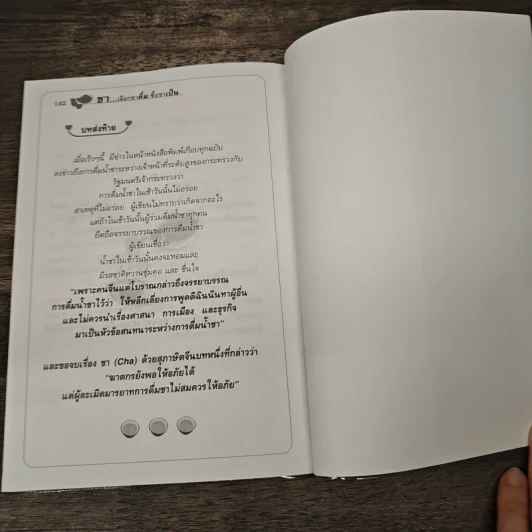 142 ชา...เลือกชาดื่ม ซื้อชาเป็น
บทส่งท้าย
เมื่อเร็วๆนี้ มีข่าวในหน้าหนังสือพิมพ์เกือบทุกฉบับ
ลงข่าวถึงการดื่มน้ำชาระหว่างเจ้าหน้าที่ระดับสูงของกระทรวงกับ
รัฐมนตรีเจ้ากระทรวงว่า
การดื่มน้ำชาในเช้าวันนั้นไม่อร่อย
สาเหตุที่ไม่อร่อย ผู้เขียนไม่ทราบว่าเกิดจากอะไร
แต่ถ้าในเช้าวันนั้นผู้ร่วมดื่มน้ำชาทุกคน
ยึดถือจรรยาบรรณของการดื่มน้ำชา
ผู้เขียนเชื่อว่า
น้ำชาในเช้าวันนั้นคงจะหอมและ
มีรสชาติหวานชุ่มคอ และ ชื่นใจ
"เพราะคนจีนแต่โบราณกล่าวถึงจรรยาบรรณ
การดื่มน้ำชาไว้ว่า ให้หลีกเลี่ยงการพูดตินินทาผู้อื่น
และไม่ควรนำเรื่องศาสนา การเมือง และธุรกิจ
มาเป็นหัวข้อสนทนาระหว่างการดื่มน้ำชา"
และขอจบเรื่อง ชา (Cha) ด้วยสุภาษิตจีนบทหนึ่งที่กล่าวว่า
"ฆาตกรยังพอให้อภัยได้
แต่ผู้ละเมิดมารยาทการดื่มชาไม่สมควรให้อภัย"